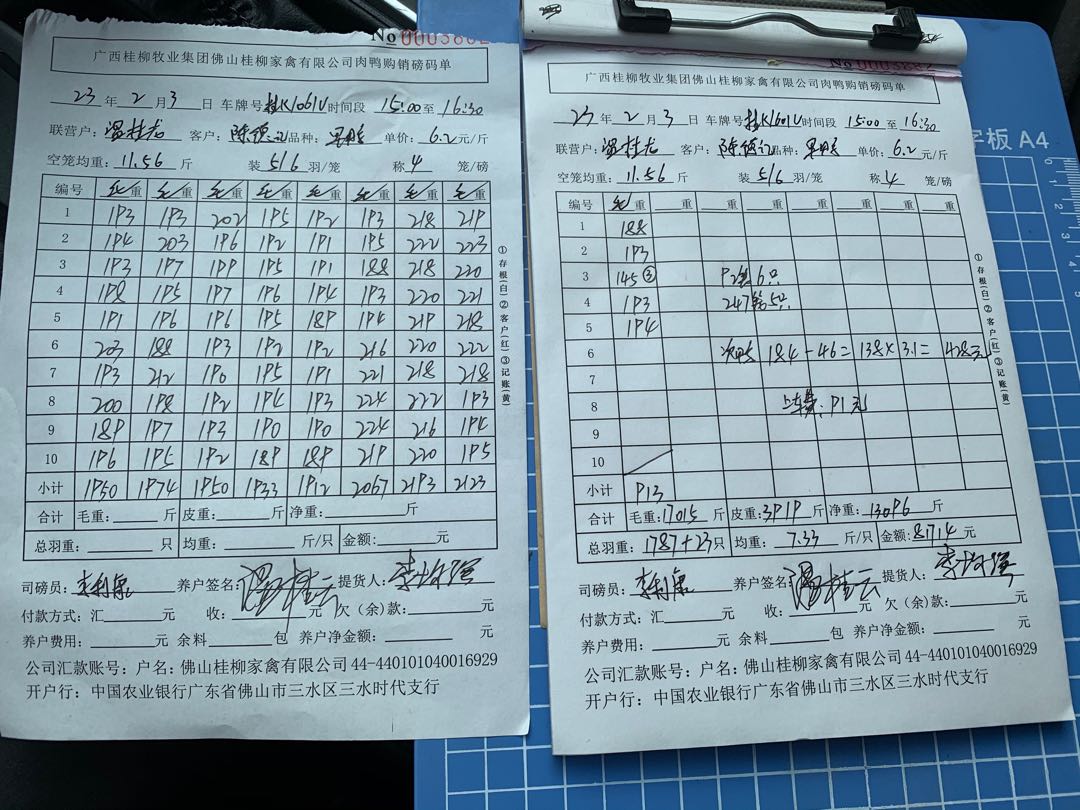 No 0003882
广西桂柳牧业集团佛山桂柳家禽有限公司肉鸭购销磅码单
23年2月3日 车牌号桂K1061V时间段15:00至16:30
联营户: 客户:陈德 品种: 单价:6.2元/斤
空笼均重:11.56斤 装5/6羽/笼 称4笼/磅
编号 毛重 毛重 毛重 毛重 毛重 毛重 毛重 毛重
1 193 193 202 195 192 193 218 219
2 194 203 196 192 191 195 222 223
3 193 197 199 195 191 188 218 220
4 198 195 197 196 194 193 220 221
5 191 196 196 195 189 194 219 218
6 203 188 193 192 192 216 220 222
7 193 212 190 195 191 221 218 218
8 200 198 192 194 193 224 222 193
9 189 197 193 190 190 224 216 194
10 196 195 192 189 189 219 220 195
小计 1950 1974 1950 1933 1912 2067 2193 2123
合计 毛重:斤 皮重:斤 净重:斤
总羽重:只 均重:斤/只 金额:元
司磅员: 养户签名: 提货人:
付款方式:汇元 收:元 欠(余)款:元
养户费用:元 余料包 养户净金额:元
公司汇款账号:户名:佛山桂柳家禽有限公司44-440101040016929
开户行:中国农业银行广东省佛山市三水区三水时代支行
①存根(白)②客户(红)③记账(黄)
No 0003882
广西桂柳牧业集团佛山桂柳家禽有限公司肉鸭购销磅码单
23年2月3日 车牌号桂K1601V时间段15:00至16:30
联营户: 客户:陈德 品种: 单价:6.2元/斤
空笼均重:11.56斤 装5/6羽/笼 称4笼/磅
编号 毛重 重 重 重 重 重 重 重
1 188
2 193
3 145③ 92笼6只
4 193 247笼5只
5 194
6 184-46=138×3.1=428元
7
8 上车费:91元
9
10
小计 913
合计 毛重:17015斤 皮重:3919斤 净重:13096斤
总羽重:1787+23只 均重:7.33斤/只 金额:81714元
司磅员: 养户签名: 提货人:
付款方式:汇元 收:元 欠(余)款:元
养户费用:元 余料包 养户净金额:元
公司汇款账号:户名:佛山桂柳家禽有限公司44-440101040016929
开户行:中国农业银行广东省佛山市三水区三水时代支行
①存根(白)②客户(红)③记账(黄)
字板 A4